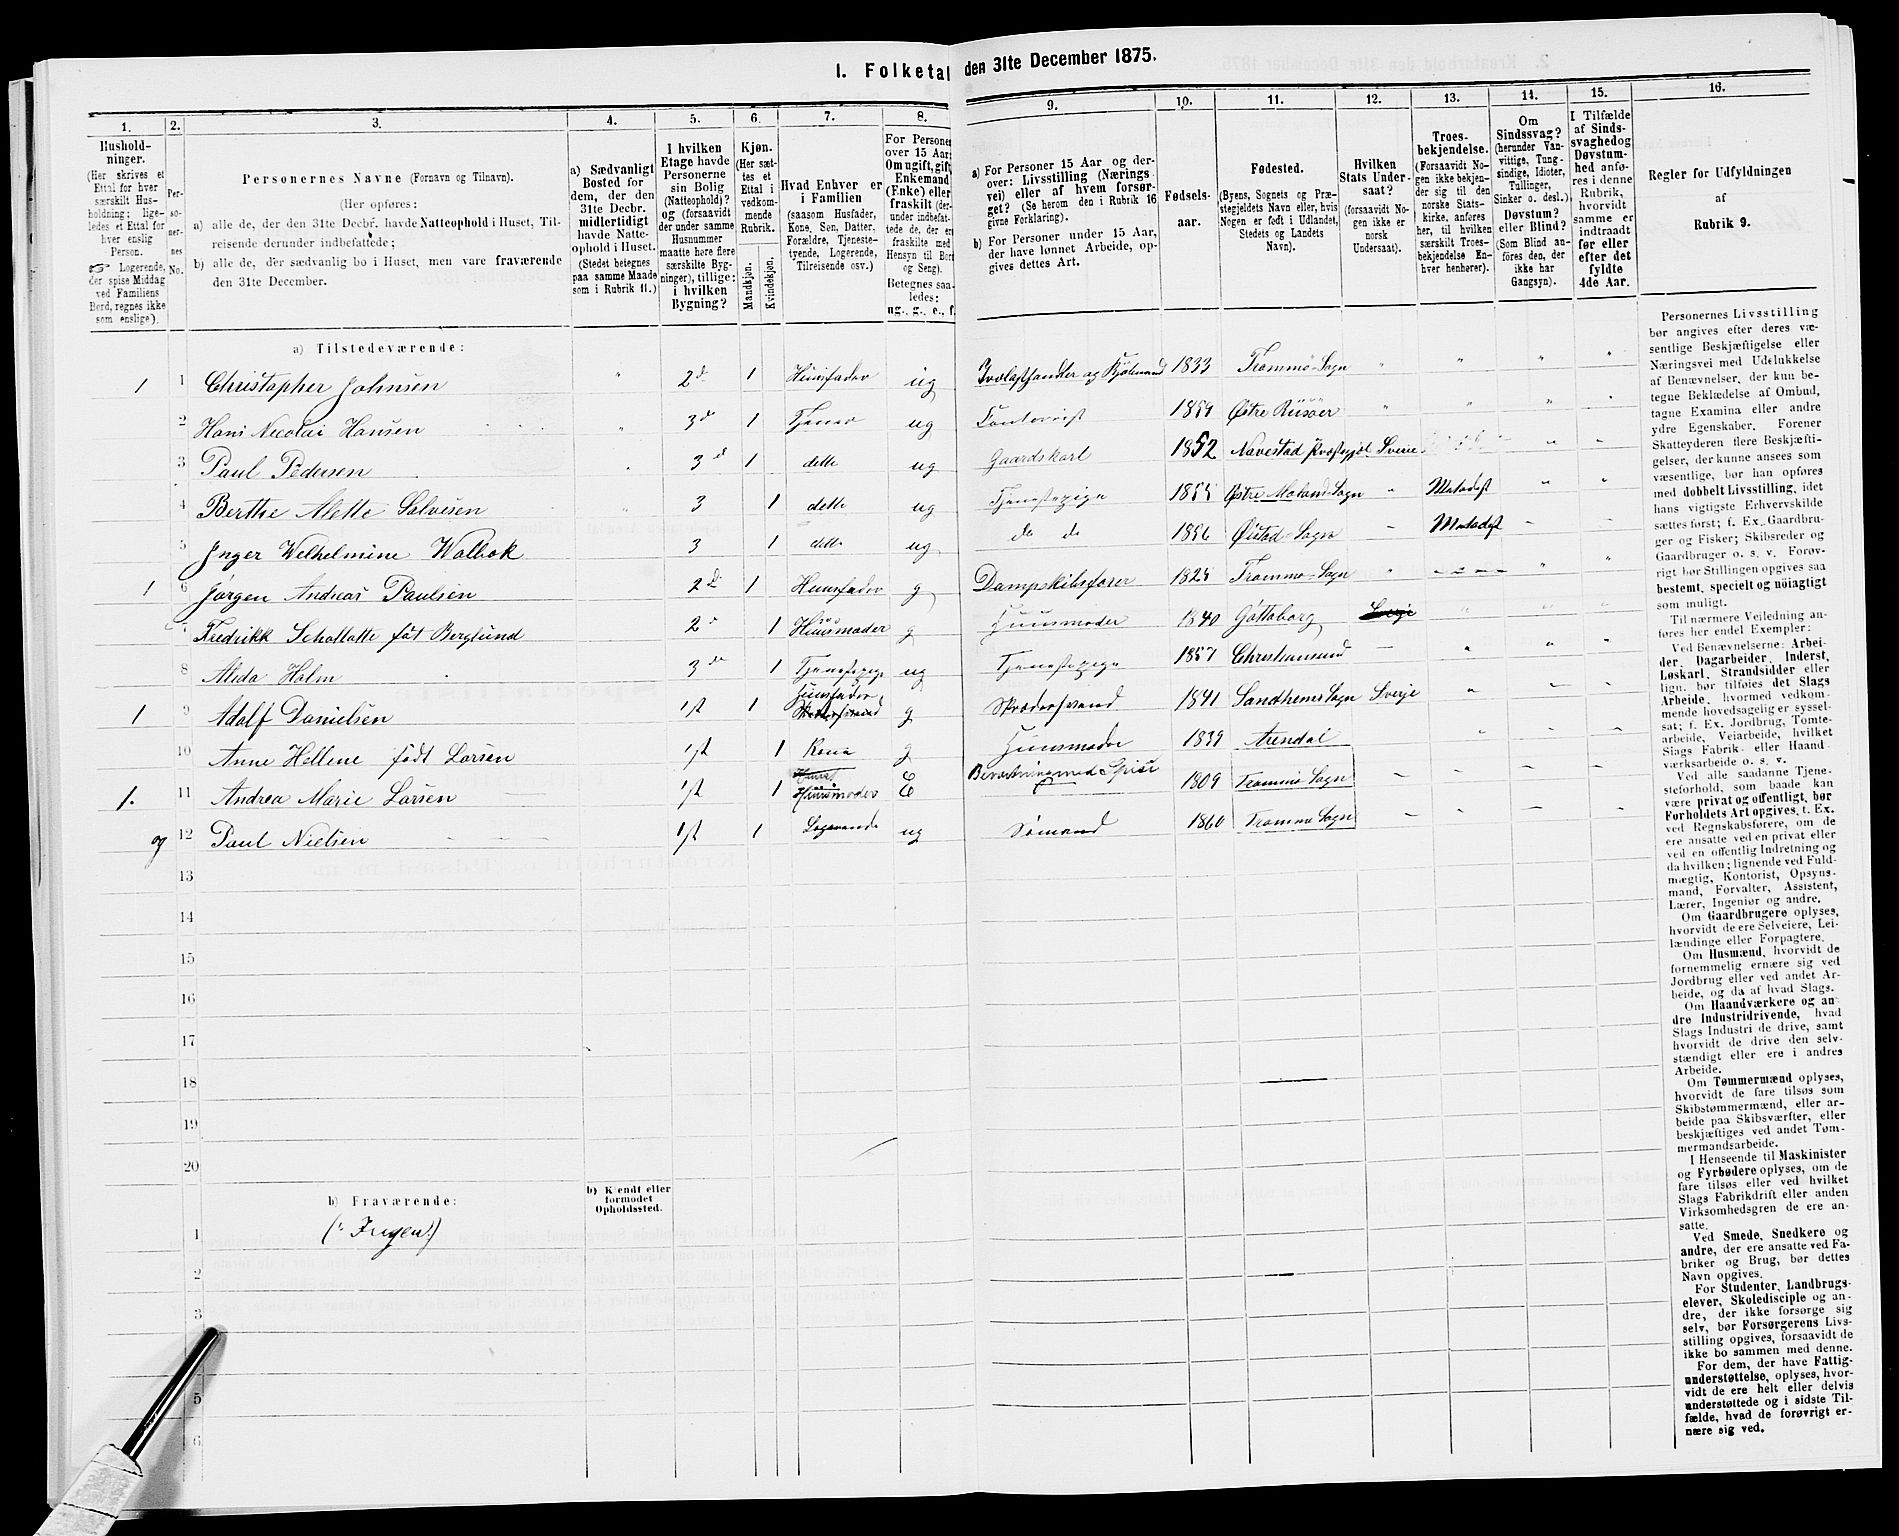 I. Folketal den 31te December 1875.
1. 2. 3. 4. 5. 6. 7. 8. 9. 10. 11. 12. 13. 14. 15. 16.
Hushold-
ninger.
(Her skrives et
Ettal for hver
særskilt Hus-
holdning; lige-
ledes et Ettal for
hver enslig
Person.
☞ Logerende,
der spise Middag
ved Familiens
Bord, regnes ikke
som enslige).
Per-
so-
ner-
nes
No.
Personernes Navne (Fornavn og Tilnavn).
(Her opføres:
a) alle de, der den 31te Decbr. havde Natteophold i Huset, Til-
reisende derunder indbefattede;
b) alle de, der sædvanlig bo i Huset, men vare fraværende
den 31te December.
a) Sædvanligt
Bosted for
dem, der den
31te Decbr.
midlertidigt
havde Natte-
ophold i Huset.
(Stedet betegnes
paa samme Maade
som i Rubrik 11.)
I hvilken
Etage havde
Personerne
sin Bolig
(Natteophold)?
og (forsaavidt
der under samme
Husnummer
maatte høre flere
særskilte Byg-
ninger), tillige:
i hvilken
Bygning?
Kjøn.
(Her sæt-
tes et
Ettal i
vedkom-
mende
Rubrik.
Mandkjøn.
Kvindekjøn.
Hvad Enhver er
i Familien
(saasom Husfader,
Kone, Søn, Datter,
Forældre, Tjeneste-
tyende, Logerende,
Tilreisende osv.)
For Personer
over 15 Aar:
Om ugift, gift,
Enkemand
(Enke) eller
fraskilt (der-
under indbefat-
tede de, der ere
fraskilte med
Hensyn til Bord
og Seng).
Betegnes saa-
ledes:
ug., g., e., f.
a) For Personer 15 Aar og der-
over: Livsstilling (Nærings-
vei) eller af hvem forsør-
get? (Se herom den i Rubrik 16
givne Forklaring).
b) For Personer under 15 Aar,
der have lønnet Arbeide, op-
gives dettes Art.
Fødsels-
aar.
Fødested.
(Byens, Sognets og Præ-
stegjeldets Navn eller, hvis
Nogen er født i Udlandet,
Stedets og Landets
Navn).
Hvilken
Stats Under-
saat?
(forsaavidt No-
gen ikke er
norsk
Undersaat).
Troes-
bekjendelse.
(Forsaavidt No-
gen ikke bekjen-
der sig til den
norske Stats-
kirke, anføres
her, til hvilken
særskilt Troes-
bekjendelse En-
hver henhører).
Om
Sindssvag?
(herunder Van-
vittige, Tung-
sindige, Idioter,
Tullinger,
Sinker o. desl.)
Døvstum?
eller Blind?
(Som Blind an-
føres den, der
ikke har
Gangsyn).
I Tilfælde
af Sinds-
svaghed og
Døvstum-
hed anfø-
res i denne
Rubrik,
hvorvidt
samme er
indtraadt
før eller
efter det
fyldte
4de Aar.
Regler for Udfyldningen
af
Rubrik 9.
a) Tilstedeværende:
1 1 Christopher Johnsen " 2d 1 Huusfader ug og 1833 Tromø Sogn " " " "
2 Hans Nicolai Hansen " 3d 1 Tjener ug Contorist 1859 Østre Riisøer " " " "
3 Paul Pedersen 3d 1 dette ug Gaardskarl 1852 Navestad Sverie
4 Berthe Alette Salvesen 3 1 dette ug Tjenestepige 1855 Østre Moland Sogn "
5 Inger Welhelmine Walbok 3 1 dette ug do do 1856 Øiestad Sogn
1 6 Jørgen Andreas Paulsen 2d 1 Huusfader g Dampskibsfører 1825 Tromø Sogn
7 Fredrikk født Berglund 2d 1 Huusmoder g Huusmoder 1840 Gøttoborg Sverje
8 Alida Holm 3d 1 Tjenestepige ug Tjenestepige 1857 Christiansund
1 9 Adolf Danielsen 1st 1 Huusfader g Skrædersvend 1841 Sandhems Sogn Sverje
10 Anne Hellene født Larsen 1st 1 Kone g Huusmoder 1839 Arendal
1. 11 Andrea Marie Larsen 1st 1 Huusmoder E Bevertning med Spise 1809 Tromø Sogn
og 12 Paul Nielsen 1st 1 Logerende ug Sømand 1860 Tromø Sogn
13
14
15
16
17
18
19
20
b) Fraværende:
b) Kjendt eller
formodet
Opholdssted.
1 (: Ingen :)
2
3
5
6
Personernes Livsstilling
bør angives efter deres væ-
sentlige Beskjæftigelse eller
Næringsvei med Udelukkelse
af Benævnelser, der kun be-
tegne Beklædelse af Ombud,
tagne Examina eller andre
ydre Egenskaber. Forener
Skatteyderen flere Beskjæfti-
gelser, der kunne ansees som
væsentlige, bør han opføres
med dobbelt Livsstilling, idet
hans vigtigste Erhvervskilde
sættes først; f. Ex. Gaardbru-
ger og Fisker; Skibsreder og
Gaardbruger o. s. v. Forøv-
rigt bør Stillingen opgives saa
bestemt, specielt og nöiagtigt
som muligt.
Til nærmere Veiledning an-
føres her endel Exempler:
Ved Benævnelserne: Arbei-
der, Dagarbeider, Inderst,
Løskarl, Strandsidder eller
lign. bør tilføies det Slags
Arbeide, hvormed vedkom-
mende hovedsagelig er syssel-
sat; f. Ex. Jordbrug, Tomte-
arbeide, Veiarbeide, hvilket
Slags Fabrik- eller Haand-
værksarbeide o. s. v.
Ved alle saadanne Tjene-
steforhold, som baade kan
være privat og offentligt, bør
Forholdets Art opgives, t. Ex.
ved Regnskabsførere, om de
ere ansatte ved en privat eller
ved en offentlig Indretning og
da hvilken; lignende ved Fuld-
mægtig, Kontorist, Opsyns-
mand, Forvalter, Assistent,
Lærer, Ingeniør og andre.
Om Gaardbrugere oplyses,
hvorvidt de ere Selveiere, Lei-
lændinge eller Forpagtere.
Om Husmænd, hvorvidt de
fornemmelig ernære sig ved
Jordbrug eller ved andet Ar-
beide, og da af hvad Slags.
Om Haandværkere og an-
dre Industridrivende, hvad
Slags Industri de drive, samt
hvorvidt de drive den selv-
stændigt eller ere i andres
Arbeide.
Om Tømmermænd oplyses,
hvorvidt de fare tilsøs som
Skibstømmermænd, eller ar-
beide paa Skibsværfter, eller
beskjæftiges ved andet Tøm-
mermandsarbeide.
I Henseende til Maskinister
og Fyrbødere oplyses, om de
fare tilsøs eller ved hvilket
Slags Fabrikdrift eller anden
Virksomhedsgren de ere an-
satte.
Ved Smede, Snedkere og
andre, der ere ansatte ved Fa-
briker og Brug, bør dettes
Navn opgives.
For Studenter, Landbrugs-
elever, Skoledisciple og an-
dre, der ikke forsørge sig
selv, bør Forsørgerens Livs-
stilling opgives, forsaavidt de
ikke bo sammen med denne.
For dem, der have Fattig-
understøttelse, oplyses, hvor-
vidt de ere helt eller delvis
understøttede og i sidste Til-
fælde, hvad de forøvrigt er-
nære sig ved.